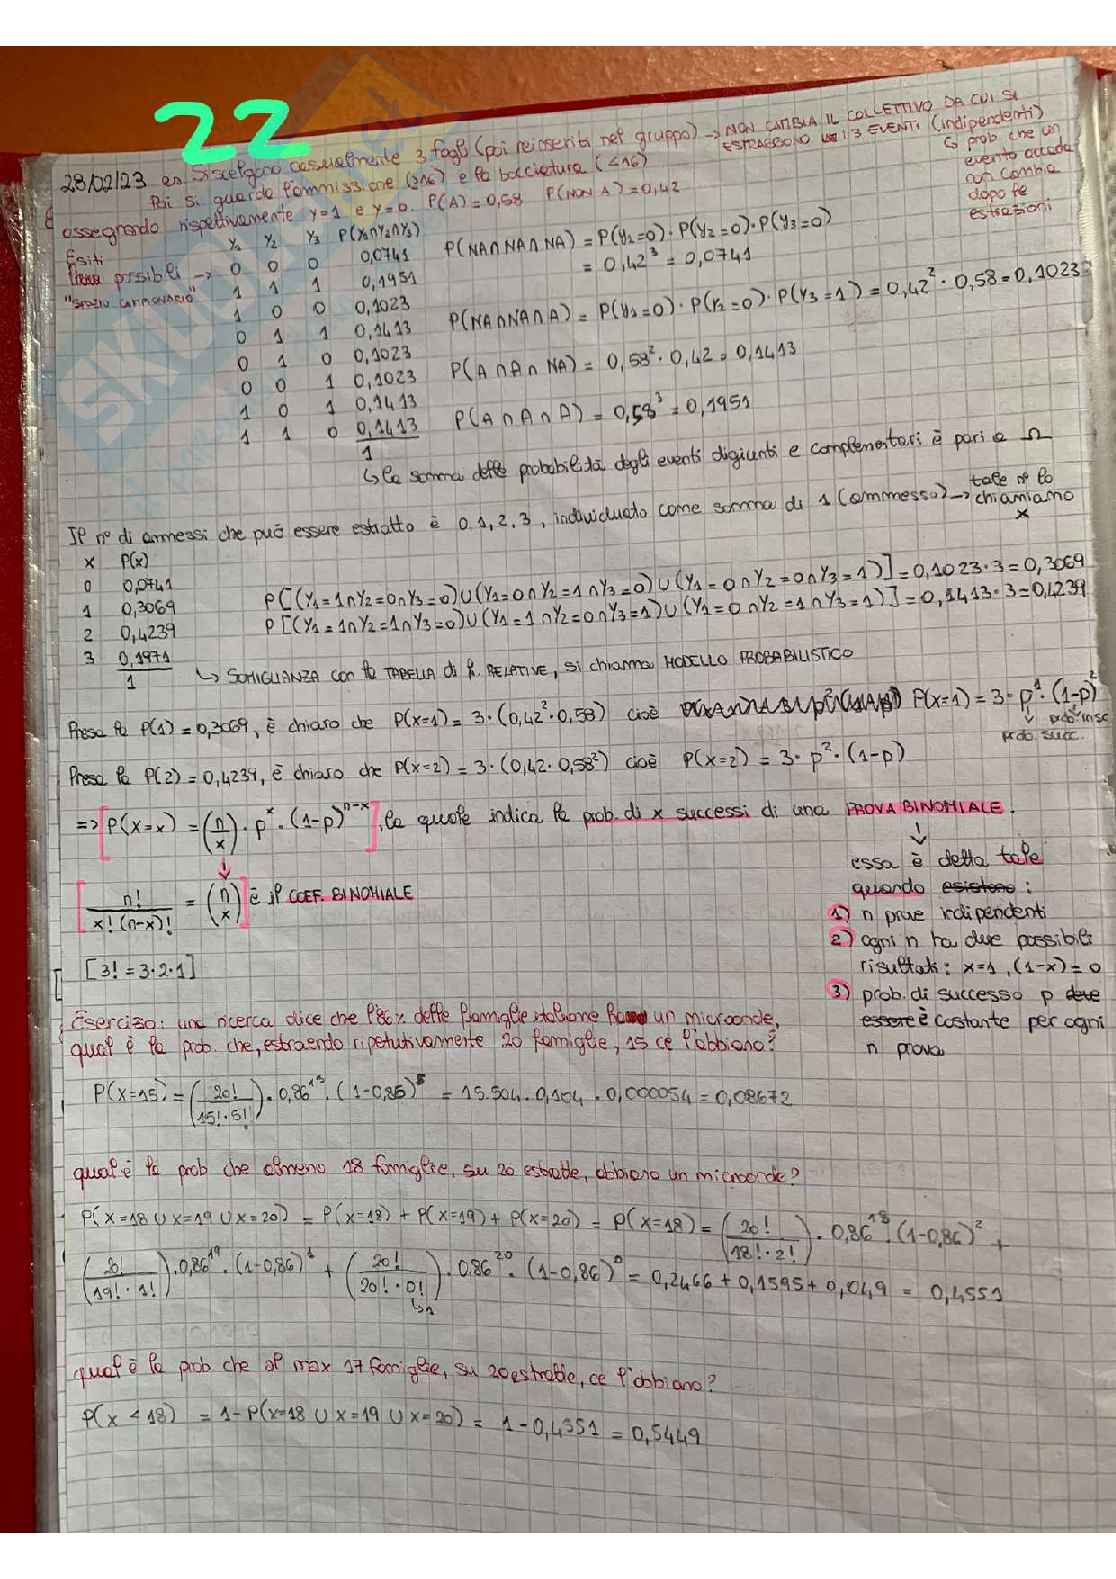 22
28/02/23 es. Si scelgono casualmente 3 fogli (poi reinseriti nel gruppo) -> NON CAMBIA IL COLLETTIVO DA CUI SI
ESTRAGGONO I 3 EVENTI (indipendenti)
↳ prob. che un
evento accada
non cambia
dopo le
estrazioni
Poi si guarda l'ammissione (≥16) e la bocciatura (<16)
assegnando rispettivamente y=1 e y=0. P(A)=0,58 P(NON A)=0,42
Esiti
possibili ->
"SPAZIO CAMPIONARIO"
Y1 Y2 Y3 P(Y1∩Y2∩Y3)
0 0 0 0,0741
1 1 1 0,1951
1 0 0 0,1023
0 1 1 0,1413
0 1 0 0,1023
0 0 1 0,1023
1 0 1 0,1413
1 1 0 0,1413
1
P(NA∩NA∩NA) = P(Y1=0)·P(Y2=0)·P(Y3=0)
= 0,42³ = 0,0741
P(NA∩NA∩A) = P(Y1=0)·P(Y2=0)·P(Y3=1) = 0,42²·0,58=0,1023
P(A∩A∩NA) = 0,58²·0,42=0,1413
P(A∩A∩A) = 0,58³=0,1951
↳ la somma delle probabilità degli eventi digiunti e complementari è pari a Ω
Il n° di ammessi che può essere estratto è 0,1,2,3, individuato come somma di 1 (ammesso) -> tale n° lo
chiamiamo
x
x P(x)
0 0,0741
1 0,3069
2 0,4239
3 0,1971
1
P[(Y1=1∩Y2=0∩Y3=0)∪(Y1=0∩Y2=1∩Y3=0)∪(Y1=0∩Y2=0∩Y3=1)]=0,1023·3=0,3069
P[(Y1=1∩Y2=1∩Y3=0)∪(Y1=1∩Y2=0∩Y3=1)∪(Y1=0∩Y2=1∩Y3=1)]=0,1413·3=0,4239
↳ SOMIGLIANZA con la TABELLA di f. RELATIVE, si chiama MODELLO PROBABILISTICO
Presa la P(1)=0,3069, è chiaro che P(x=1) = 3·(0,42²·0,58) cioè P(x=1)=3·p¹·(1-p)²
prob. succ. prob. insc
Presa la P(2)=0,4239, è chiaro che P(x=2) = 3·(0,42·0,58²) cioè P(x=2) = 3·p²·(1-p)
=> [P(X=x) = (n x)·p^x·(1-p)^n-x], la quale indica la prob. di x successi di una PROVA BINOMIALE.
[n!/x!(n-x)! = (n x)] è il COEF. BINOMIALE
[3!=3·2·1]
essa è detta tale
quando esistono:
1) n prove indipendenti
2) ogni n ha due possibili
risultati: x=1, (1-x)=0
3) prob. di successo p deve
essere è costante per ogni
n prova
Esercizio: una ricerca dice che l'86% delle famiglie italiane ha un microonde,
qual è la prob. che, estraendo ripetutivamente 20 famiglie, 15 ce l'abbiano?
P(x=15) = (20!/15!·5!)·0,86¹⁵·(1-0,86)⁵ = 15.504·0,104·0,000054=0,08672
qual è la prob che almeno 18 famiglie, su 20 estratte, abbiano un microonde?
P(x=18∪x=19∪x=20) = P(x=18)+P(x=19)+P(x=20) = P(x=18) = (20!/18!·2!)·0,86¹⁸·(1-0,86)² +
(20!/19!·1!)·0,86¹⁹·(1-0,86)¹ + (20!/20!·0!)·0,86²⁰·(1-0,86)⁰ = 0,2466+0,1595+0,049 = 0,4551
↳1
qual è la prob che al max 17 famiglie, su 20 estratte, ce l'abbiano?
P(x<18) = 1-P(x=18∪x=19∪x=20) = 1-0,4551=0,5449